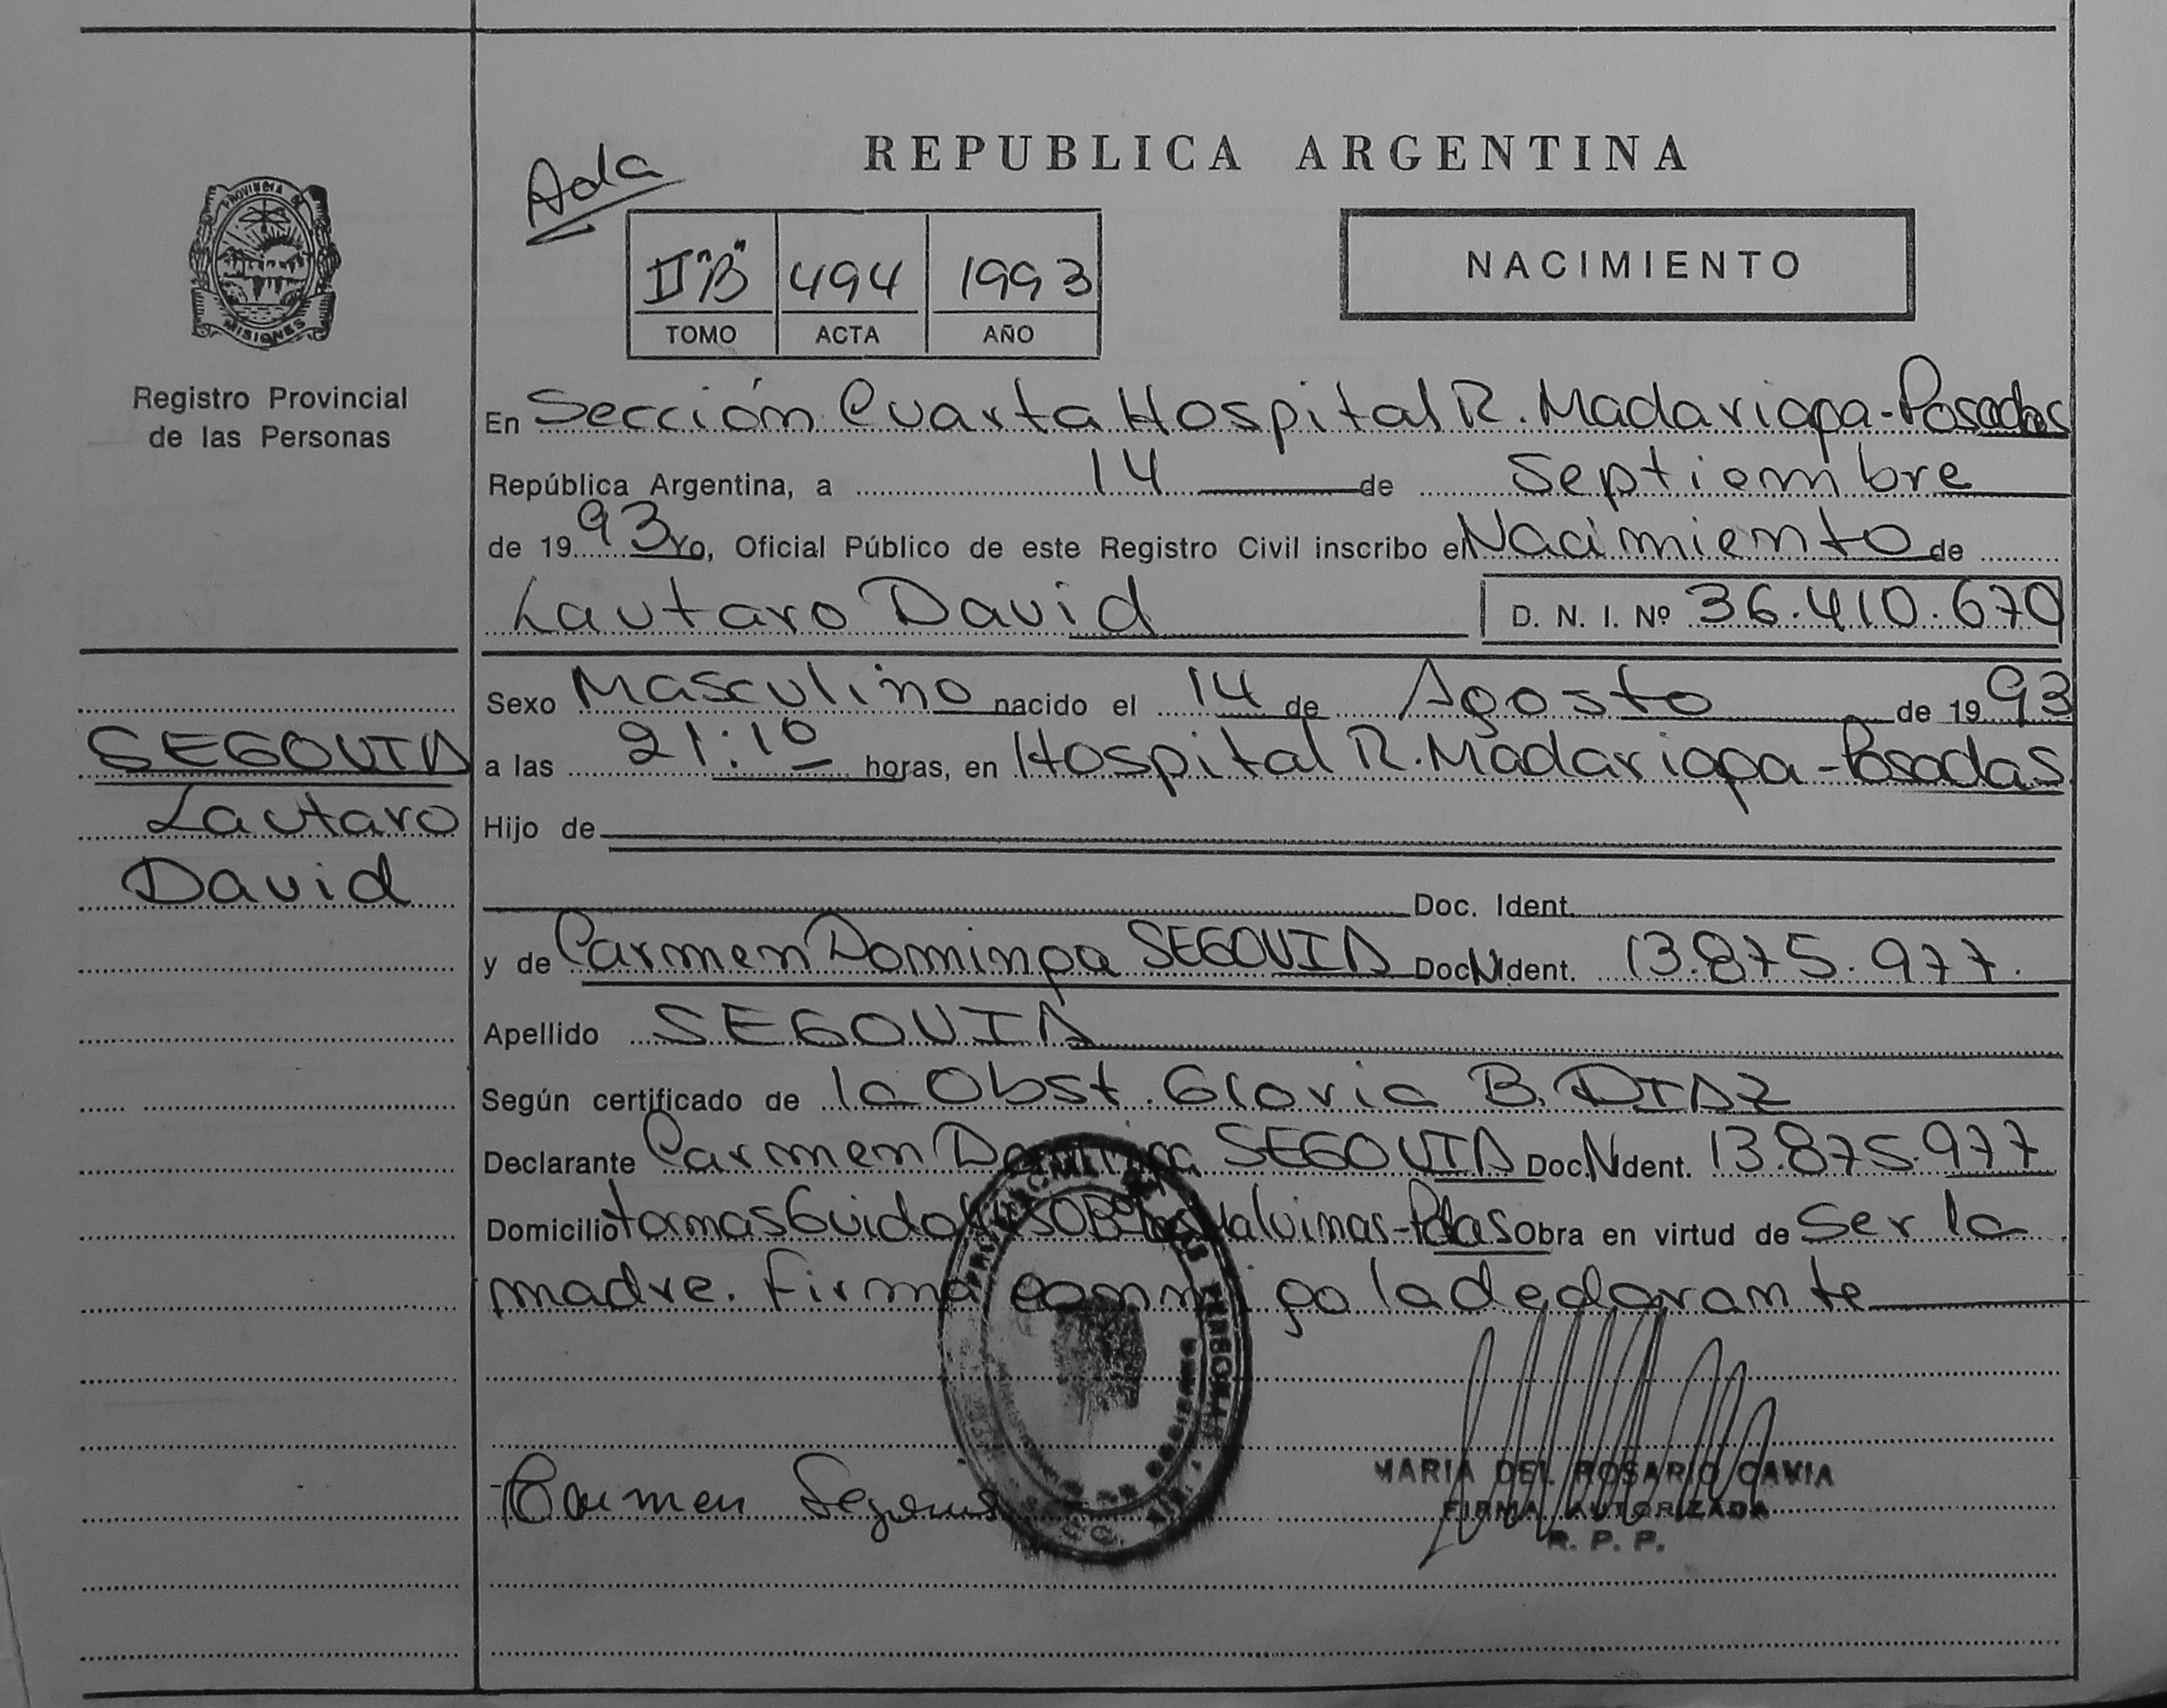 REPUBLICA ARGENTINA
Ada
II "B" 494 1993
TOMO ACTA AÑO
NACIMIENTO
PROVINCIA DE
MISIONES
Registro Provincial
de las Personas
En Sección Cuarta Hospital R. Madariaga-Posadas
República Argentina, a 14 de Septiembre
de 1993 Yo, Oficial Público de este Registro Civil inscribo el Nacimiento de
Lautaro David D. N. I. Nº 36.410.670
Sexo Masculino nacido el 14 de Agosto de 1993
a las 21:10 horas, en Hospital R. Madariaga-Posadas
Hijo de
Doc. Ident.
y de Carmen Dominga SEGOVIA Doc. N Ident. 13.875.977.
Apellido SEGOVIA
Según certificado de la Obst. Gloria B. DIAZ
Declarante Carmen Dominga SEGOVIA Doc. N Ident. 13.875.977
Domicilio tomas Guido Malvinas-Pdas Obra en virtud de Ser la
madre. firma conmigo la declarante
SEGOVIA
Lautaro
David
Carmen Segovia
MARIA DEL ROSARIO CAVIA
FIRMA AUTORIZADA
R. P. P.